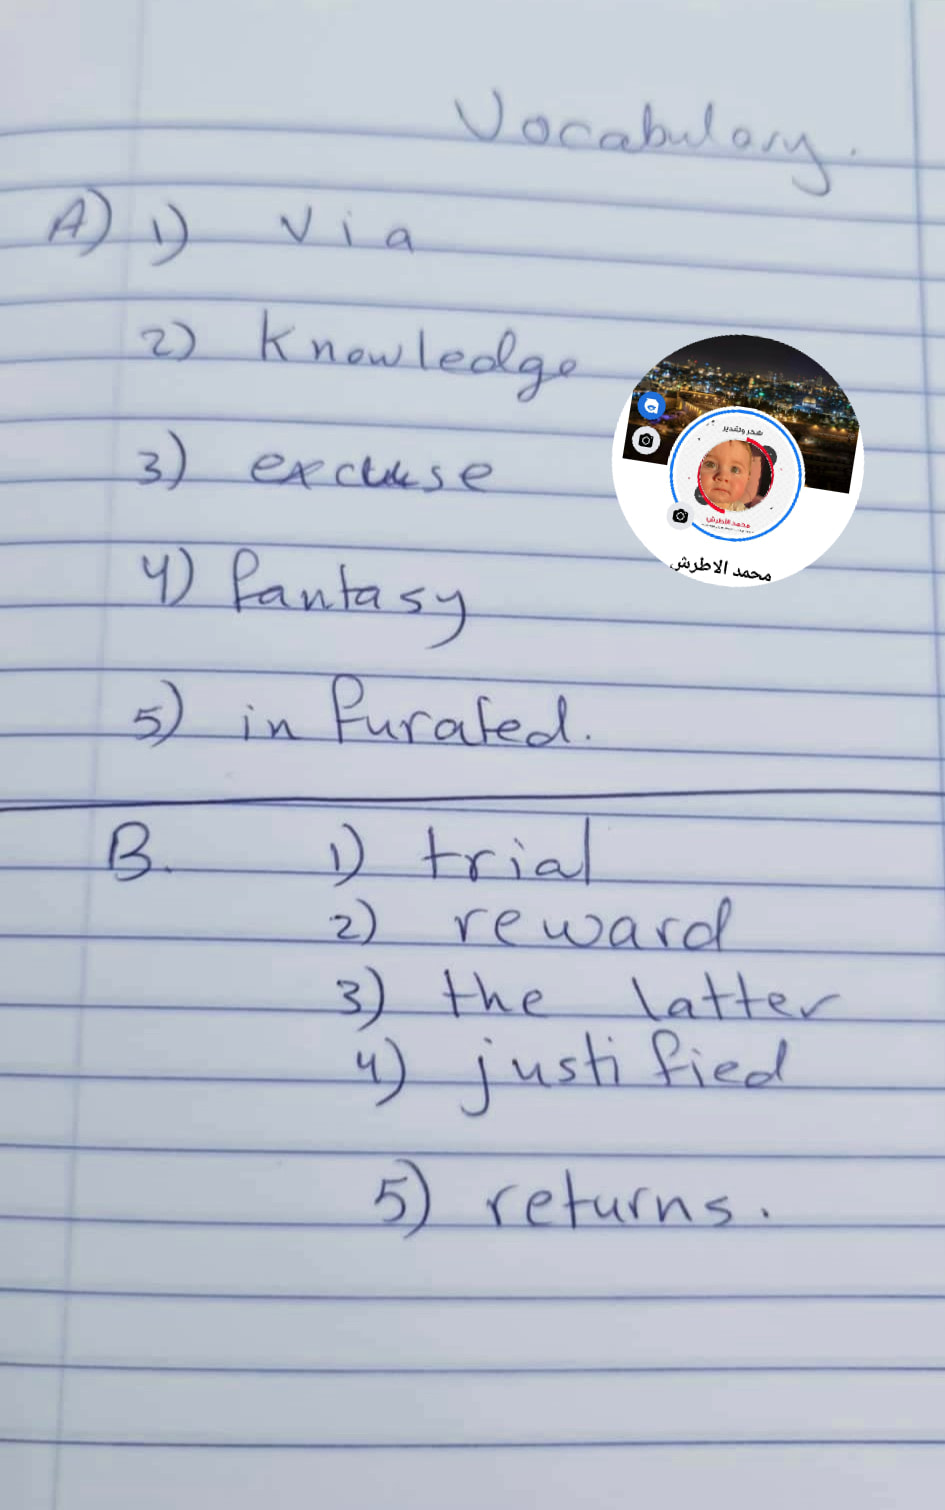 Vocabulary.
A) 1) Via
2) Knowledge
3) excuse
4) fantasy
5) infurated.
شكر وتقدير
محمد الاطرش
محمد الاطرش
B. 1) trial
2) reward
3) the latter
4) justified
5) returns.